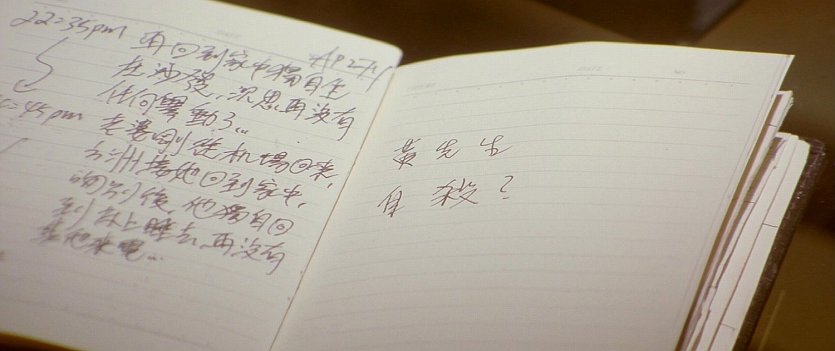 22:35pm 再回到家中獨自坐
在沙發,沉思再沒有
任何舉動了...
:45pm 老婆剛從机場回來,
接她回到家中,
吻別後,他獨自回
到床上睡去,再沒有
其他來電...
黃先生
自殺?